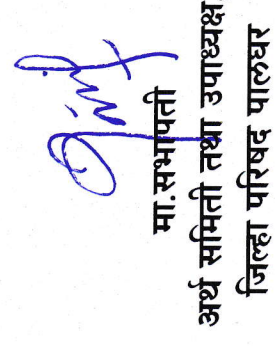 मा.सभापती
अर्थ समिती तथा उपाध्यक्ष
जिल्हा परिषद पालघर